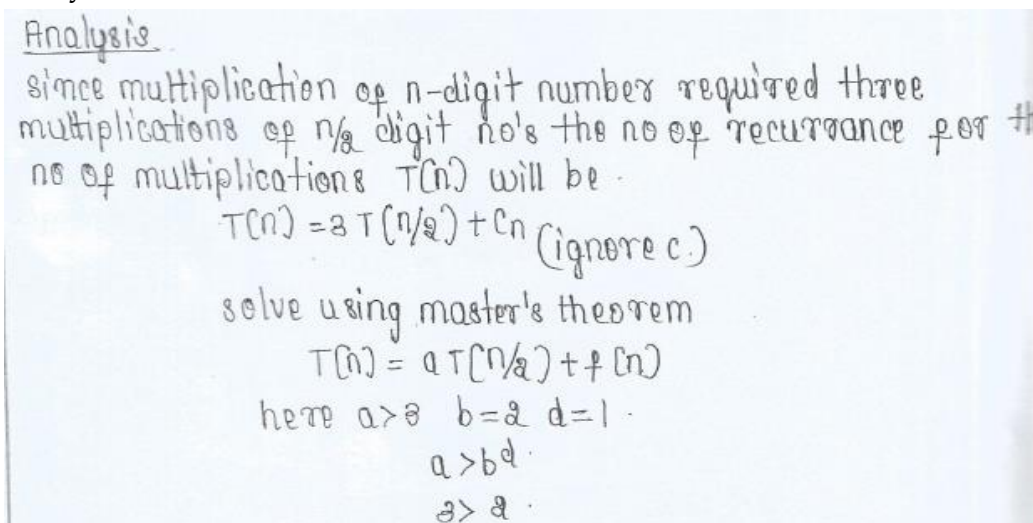 Analysis
since multiplication of n-digit number required three
multiplications of n/2 digit no's the no of recurrance for th
no of multiplications T(n) will be.
T(n) = 3 T(n/2) + Cn (ignore c.)
solve using master's theorem
T(n) = a T(n/2) + f(n)
here a>3 b=2 d=1.
a > b^d.
3 > 2.